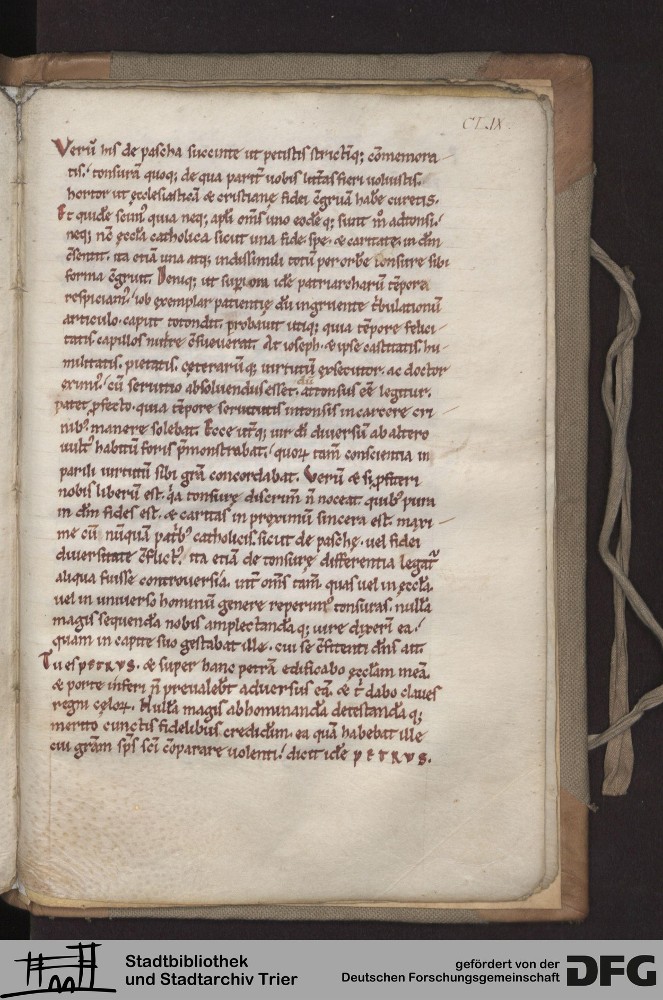 CLIX.
Verũ his de pascha succinte ut petistis strictĩq; cõmemora
tis / tonsurã quoq; de qua paritr̃ uobis litt̃as fieri uoluistis.
hortor ut ęcclesiasticã & cristianę fidei c̃gruã habr̃e curetis.
Et quidẽ scim⁹ quia neq; apl̃i om̃s uno eodẽq; sunt m̃ adtonsi /
neq; nc̃ ęccl̃a catholica sicut una fide. spe. & caritate in dm̃
c̃sentit. ita etiã una atq; indissimili totũ per orbẽ tonsurę sibi
forma c̃gruit. Deniq; ut sup̃iora idẽ patriarcharũ tẽpora
respiciam⁹ / iob exemplar patientię dũ ingruente t̃bulationũ
articulo. caput totondit. probauit utiq; quia tẽpore felici
tatis capillos nutrire c̃sueuerat. At ioseph. & ipse castitatis. hu
militatis. pietatis. cęterarũq; uirtutũ exsecutor. ac doctor
eximi⁹ / cũ seruitio absoluendus esset. attonsus eẽ legitur.
patet p̃fecto. quia tẽpore seruitutis intonsis in carcere cri
nib⁹ manere solebat. Ecce utq; uir di diuersũ ab altero
uult⁹ habitũ foris p̃monstrabat / quoꝝ tam̃ conscientia in
parili uirtutũ sibi grã concordabat. Verũ & si p̃fiteri
nobis liberũ est. q̃a tonsurę discrim̃ ñ noceat. quib⁹ pura
in dm̃ fides est. & caritas in proximũ sincera est. maxi
me cũ nũquã patrib⁹ catholicis. sicut de paschę. uel fidei
diuersitate c̃flict⁹. ita etiã de tonsurę differentia legat̃
aliqua fuisse controuersia. int̃ om̃s tam̃ quas uel in ęccl̃a.
uel in uniuerso hominũ genere reperim⁹ tonsuras. nullã
magis sequendã nobis amplectandãq; iure dixerĩ ea /
quam in capite suo gestabat ille. cui se c̃fitenti dñs ait
Tu es PETRVS. & super hanc petrã edificabo ęccl̃am meã.
& portę inferi ñ preualebt̃ aduersus eã. & t̃ dabo claues
regni cęloꝝ. Nullã magis abhominandã detestandãq;
merito cunctis fidelibus credidim̃. ea quã habebat ille
cui grãm sp̃s sc̃i c̃parare uolenti / dicit idẽ PETRVS.
Stadtbibliothek
und Stadtarchiv Trier
gefördert von der
Deutschen Forschungsgemeinschaft
DFG